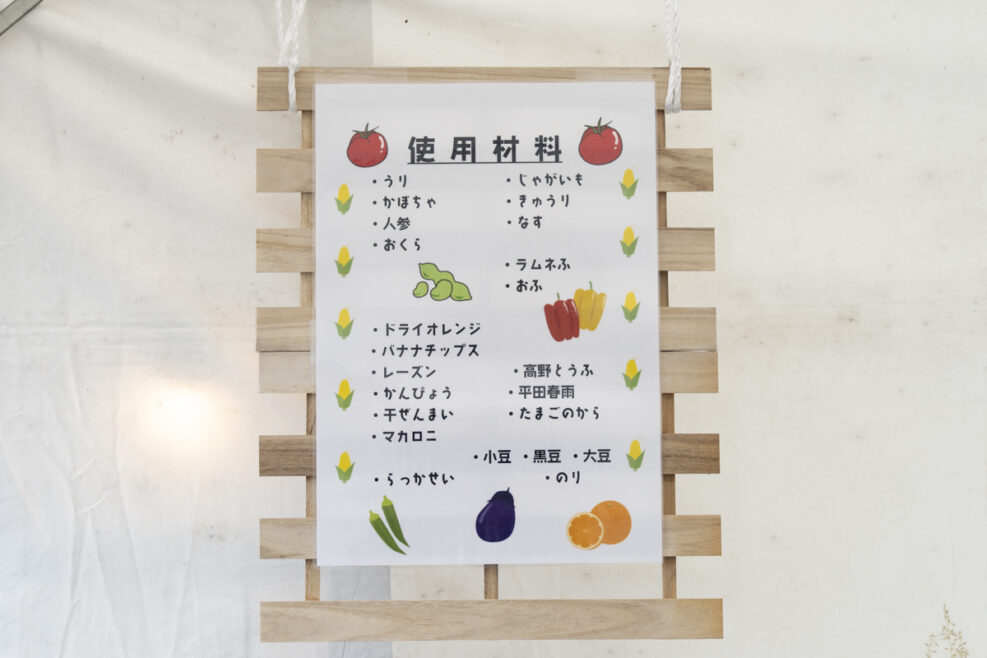 使用材料
・うり
・かぼちゃ
・人参
・おくら
・じゃがいも
・きゅうり
・なす
・ラムネふ
・おふ
・ドライオレンジ
・バナナチップス
・レーズン
・かんぴょう
・干ぜんまい
・マカロニ
・高野とうふ
・平田春雨
・たまごのから
・小豆 ・黒豆 ・大豆
・らっかせい
・のり